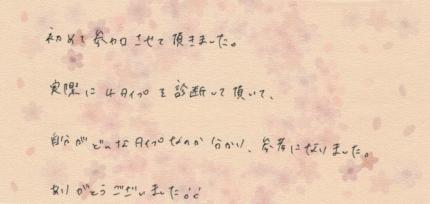 初めて参加させて頂きました。
実際に4タイプを診断して頂いて、
自分がどんなタイプなのか分かり、参考になりました。
ありがとうございました!!